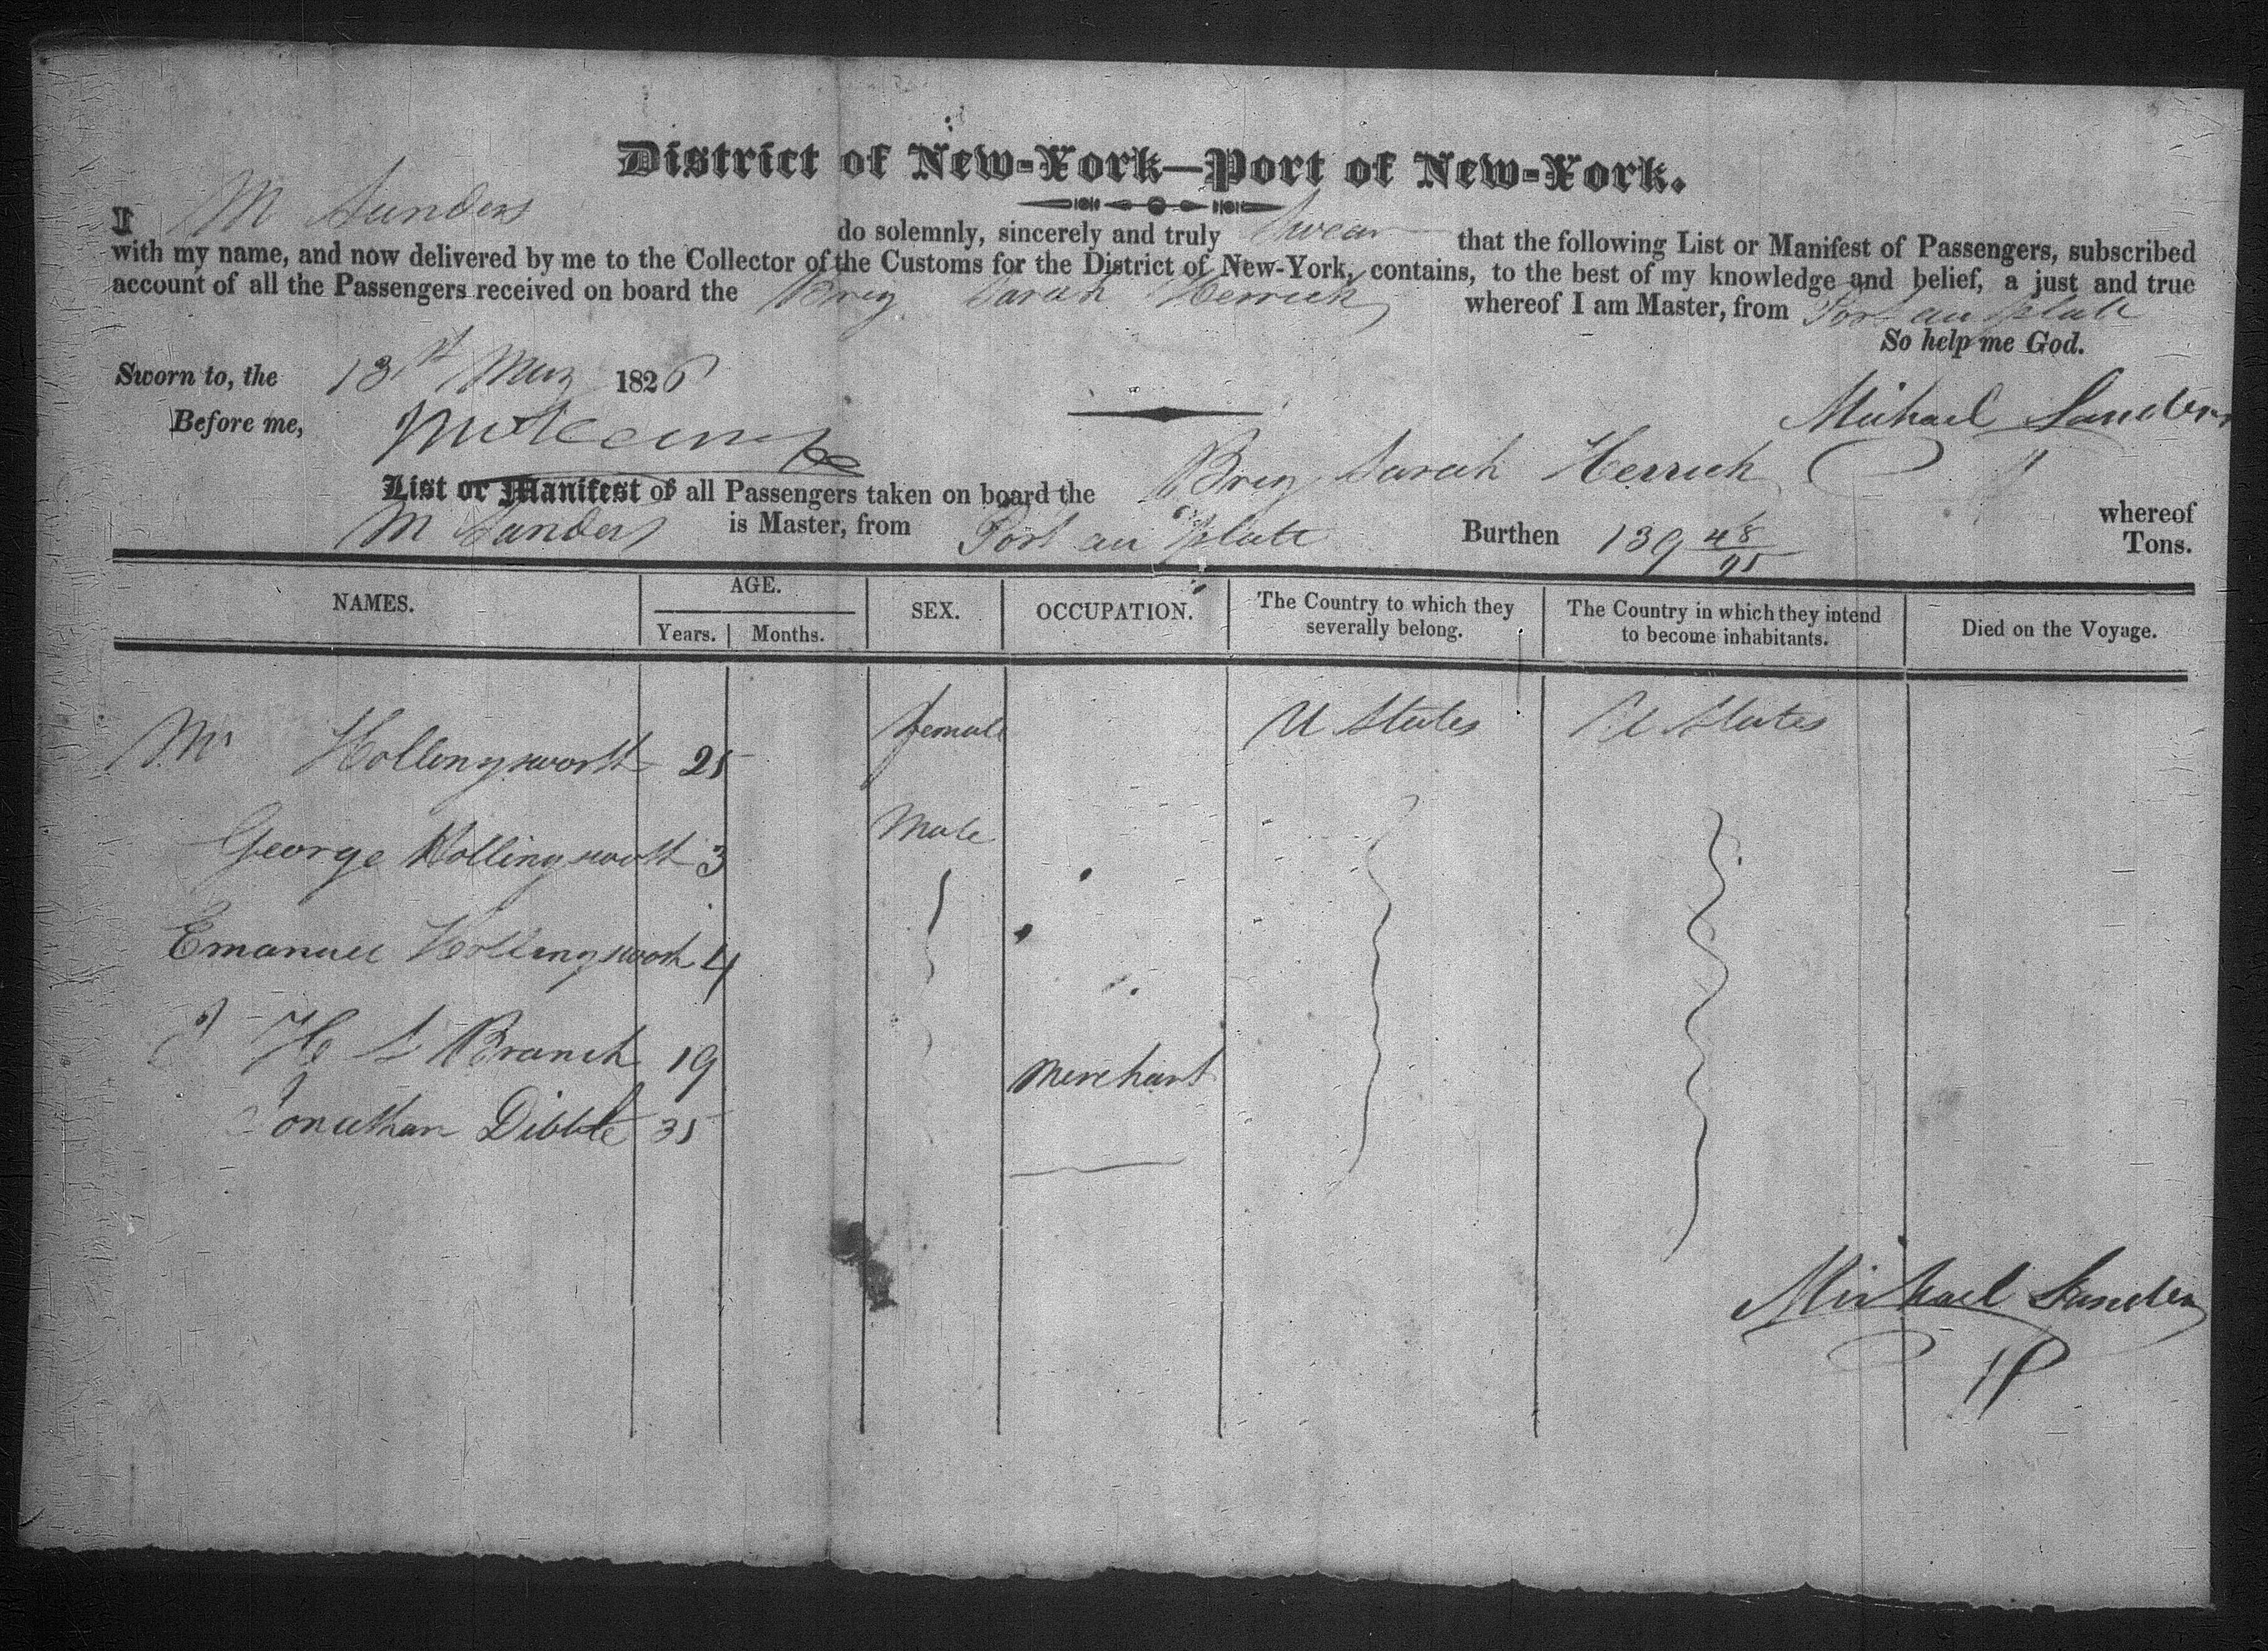 District of New-York—Port of New-York.
I M Sanders do solemnly, sincerely and truly Swear that the following List or Manifest of Passengers, subscribed
with my name, and now delivered by me to the Collector of the Customs for the District of New-York, contains, to the best of my knowledge and belief, a just and true
account of all the Passengers received on board the Brig Sarah Herrick whereof I am Master, from Port au Plate
So help me God.
Sworn to, the 13th May 1826
Michael Sanders
Before me,
List or Manifest of all Passengers taken on board the Brig Sarah Herrick whereof
M Sanders is Master, from Port au Plate Burthen 139 48/95 Tons.
NAMES. AGE. SEX. OCCUPATION. The Country to which they severally belong. The Country in which they intend to become inhabitants. Died on the Voyage.
Years. Months.
Mrs Hollingsworth 25 female U States U States
George Hollingsworth 3 Male
Emanuel Hollingsworth 4
J H S Branch 19 Merchant
Jonathan Dibble 35
Michael Sanders